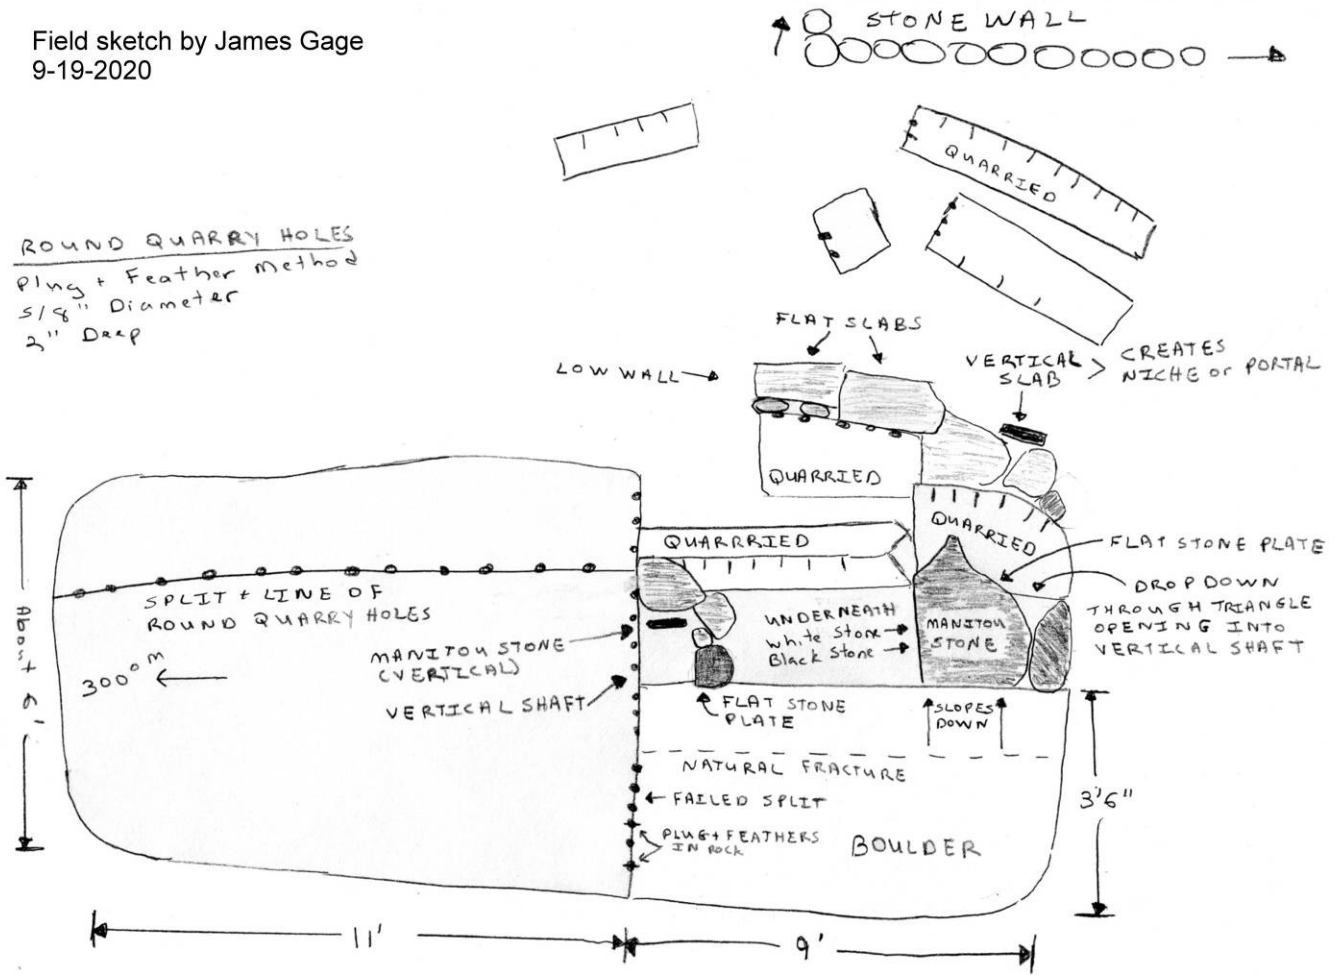 Field sketch by James Gage
9-19-2020
STONE WALL
QUARRIED
ROUND QUARRY HOLES
Plug + Feather Method
5/8" Diameter
3" Deep
FLAT SLABS
LOW WALL
VERTICAL
SLAB
CREATES
NICHE or PORTAL
QUARRIED
QUARRIED
QUARRRIED
FLAT STONE PLATE
DROP DOWN
THROUGH TRIANGLE
OPENING INTO
VERTICAL SHAFT
SPLIT + LINE OF
ROUND QUARRY HOLES
UNDERNEATH
White Stone
Black Stone
MANITOU
STONE
MANITOU STONE
(VERTICAL)
VERTICAL SHAFT
300° M
About 6'
FLAT STONE
PLATE
SLOPES
DOWN
NATURAL FRACTURE
FAILED SPLIT
PLUG + FEATHERS
IN ROCK
BOULDER
3'6"
11'
9'